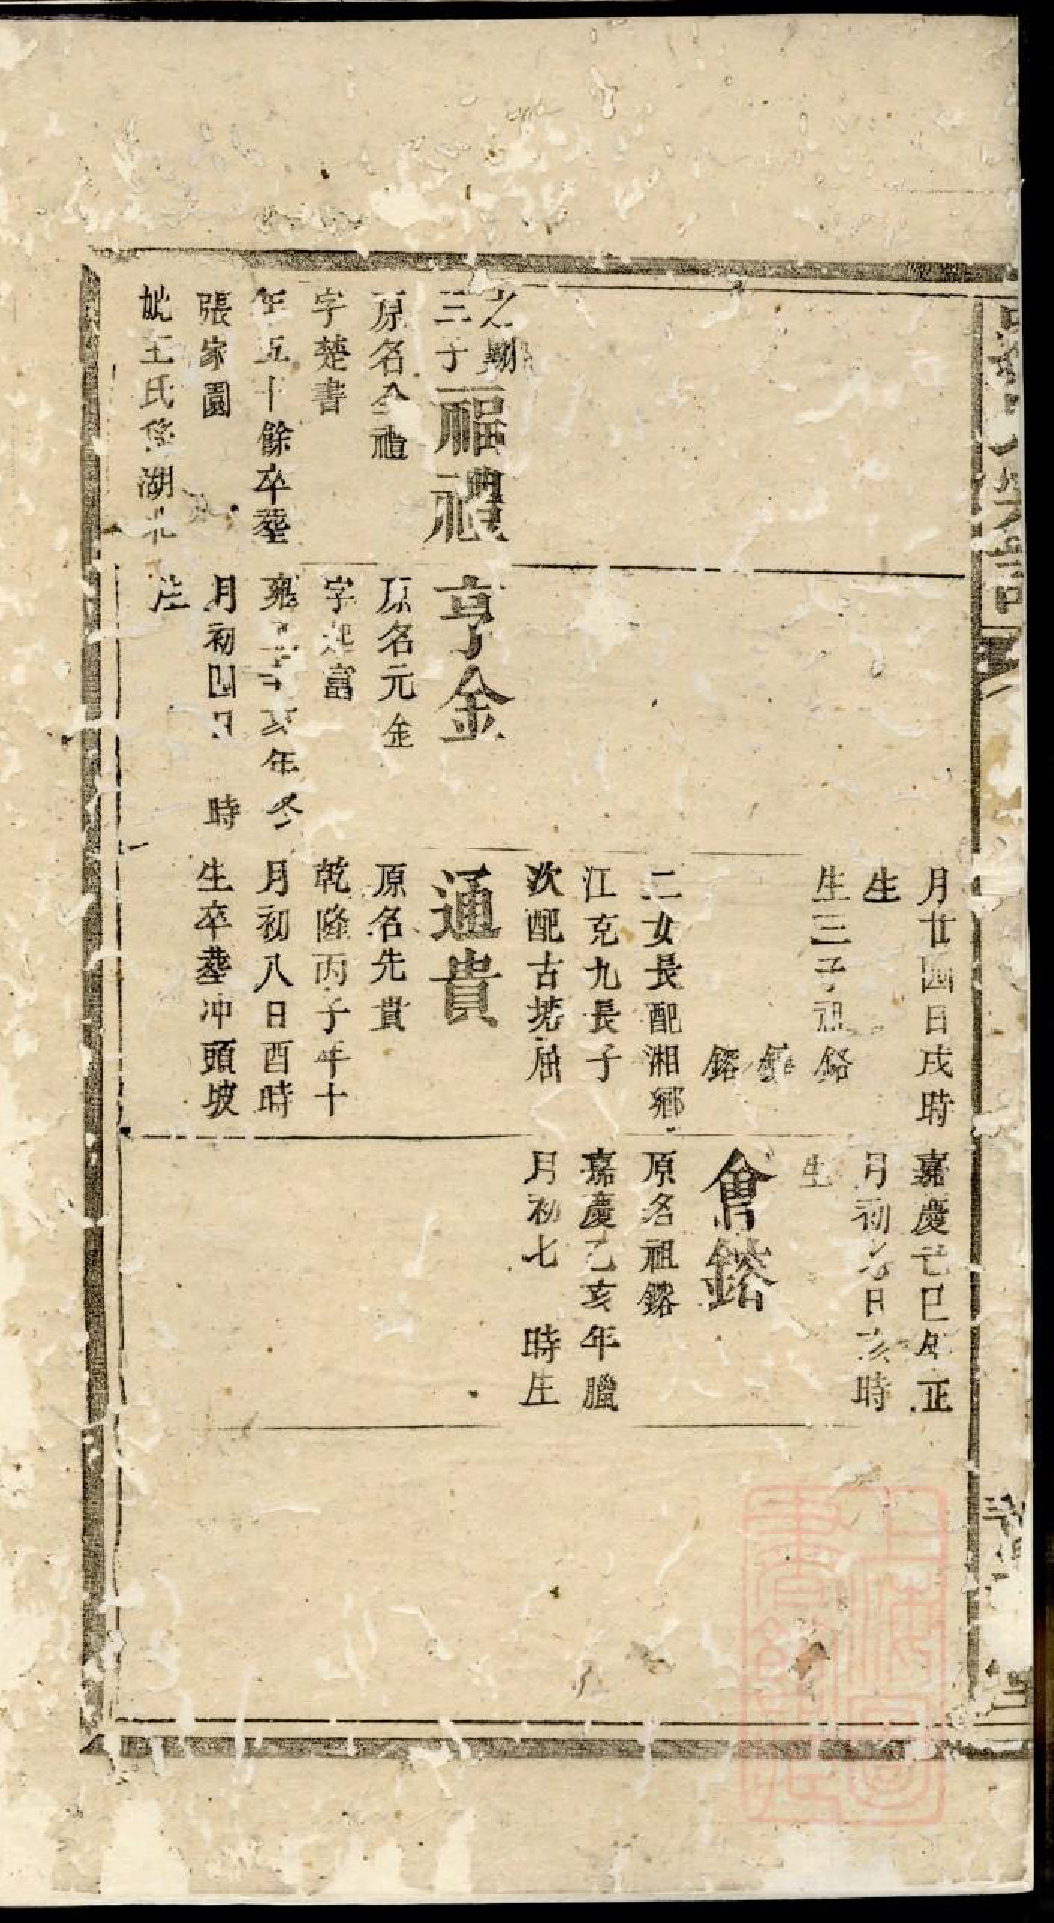 之勳
三子福禮
原名全禮
字楚書
年五十餘卒葬
張家園
妣王氏係湖北
亨金
原名元金
字起富
雍正 亥年冬
月初四日 時
生
月廿四日戌時
生
生三子祖鉻
鎔
二女長配湘鄉
江克九長子
次配古塘屈
通貴
原名先貴
乾隆丙子年十
月初八日酉時
生卒葬冲頭坡
嘉慶己巳年正
月初 日亥時
生
會鎔
原名祖鎔
嘉慶乙亥年臘
月初七 時生